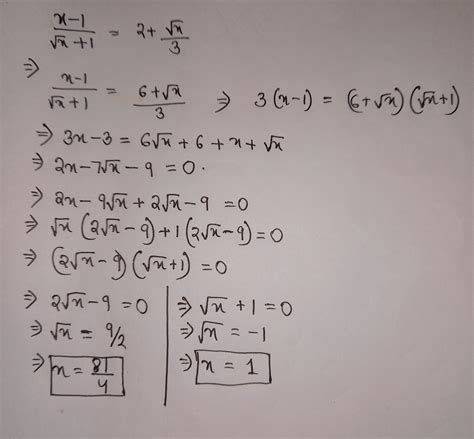 x-1/√x+1 = 2+ √x/3
⇒
x-1/√x+1 = 6+√x/3 ⇒ 3(x-1) = (6+√x)(√x+1)
⇒ 3x-3 = 6√x+6+x+√x
⇒ 2x-7√x-9=0.
⇒ 2x-9√x+2√x-9=0
⇒ √x(2√x-9)+1(2√x-9)=0
⇒ (2√x-9)(√x+1)=0
⇒ 2√x-9=0
⇒ √x = 9/2
⇒ x = 81/4
⇒ √x+1=0
⇒ √x = -1
⇒ x = 1